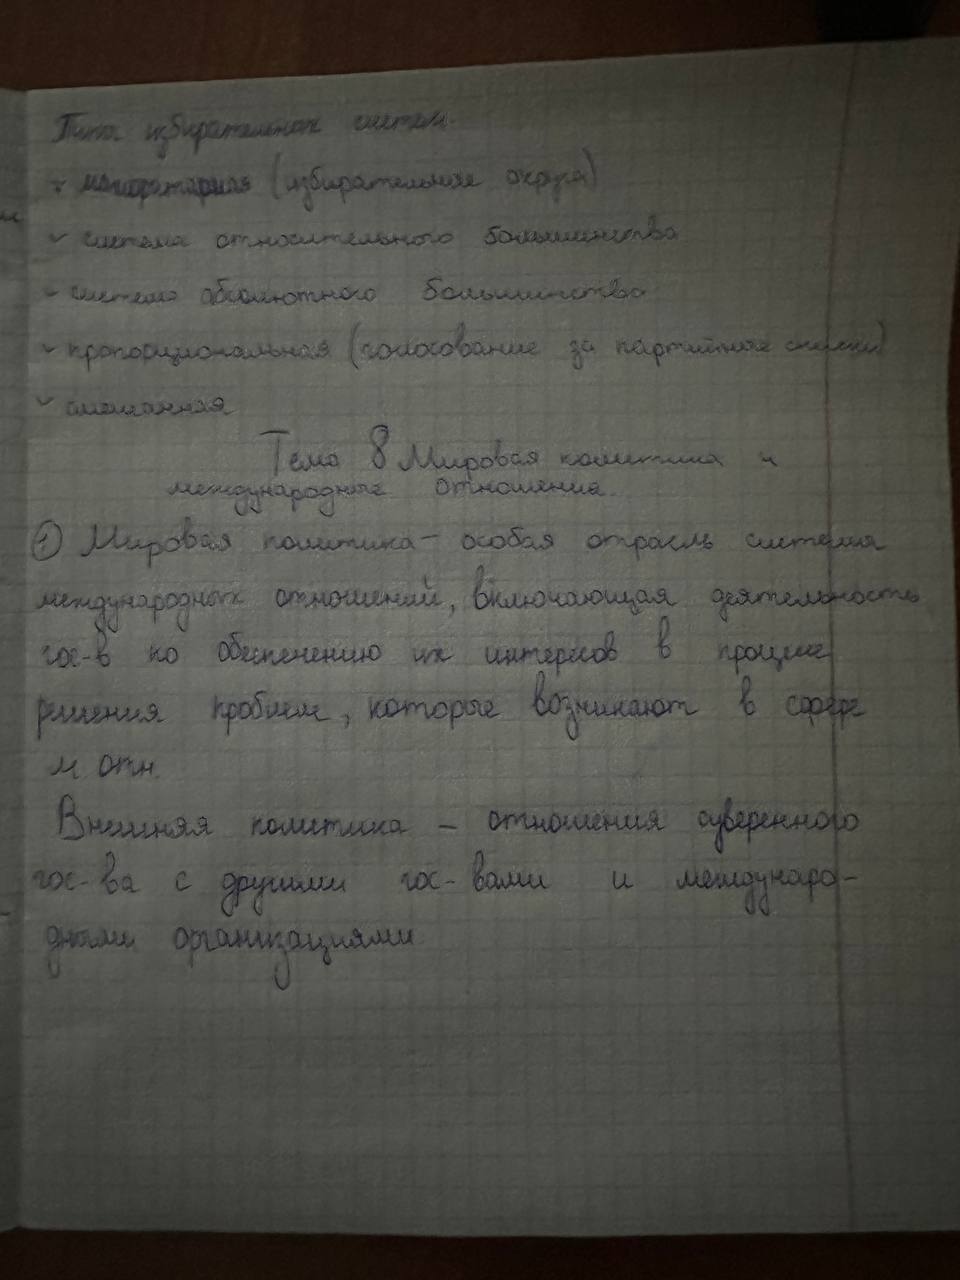 Типы избирательных систем.
мажоритарная (избирательные округа)
система относительного большинства
система абсолютного большинства
пропорциональная (голосование за партийные списки)
смешанная
Тема 8 Мировая политика и
международные отношения.
1) Мировая политика – особая отрасль системы
международных отношений, включающая деятельность
гос-в по обеспечению их интересов в процессе
решения проблем, которые возникают в сфере
м. отн.
Внешняя политика – отношения суверенного
гос-ва с другими гос-вами и междунаро-
дными организациями